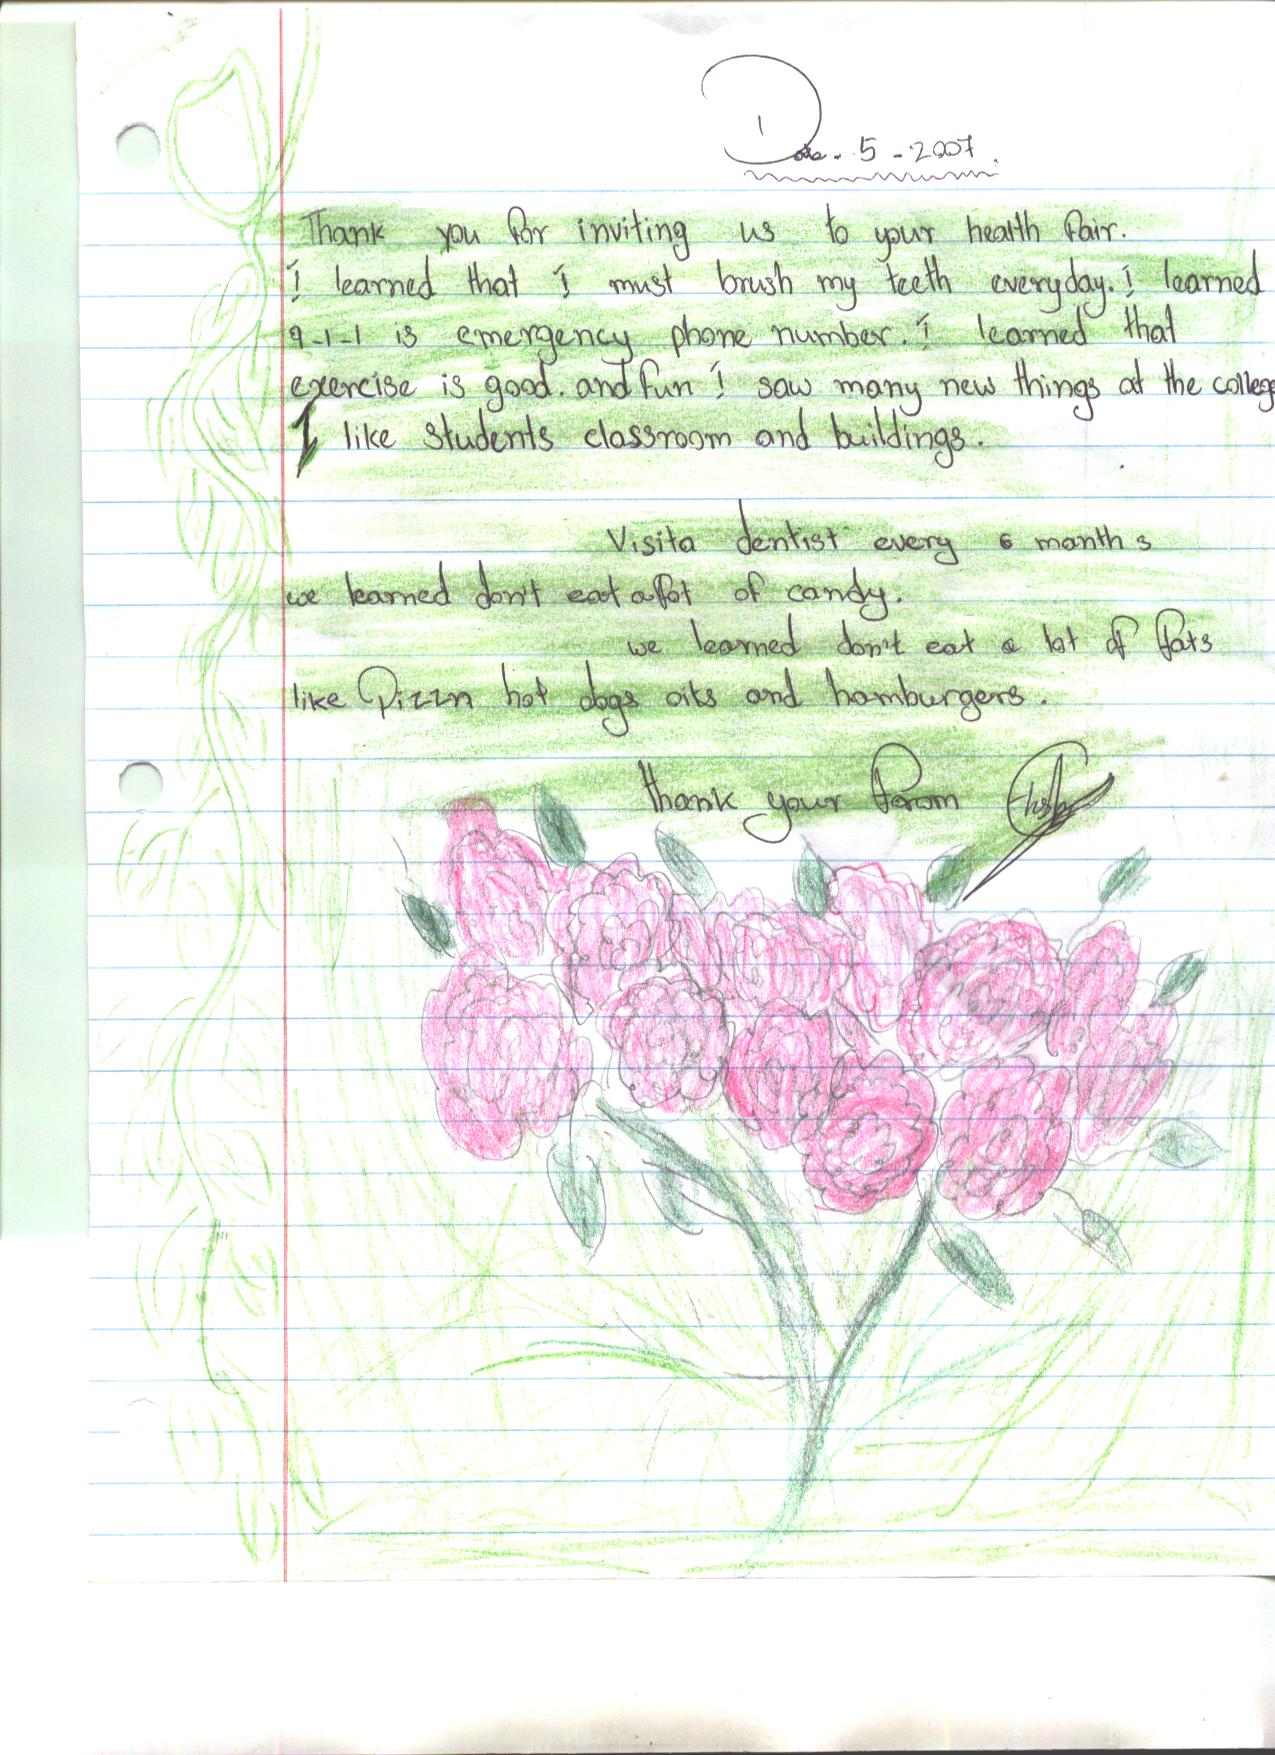 5 - 2007.
Thank you for inviting us to your health fair.
I learned that I must brush my teeth everyday. I learned
9-1-1 is emergency phone number. I learned that
exercise is good. and fun I saw many new things at the college
I like students classroom and buildings.
Visita dentist every 6 months
we learned don't eat a lot of candy.
we learned don't eat a lot of fats
like Pizzn hot dogs oils and hamburgers.
thank your from